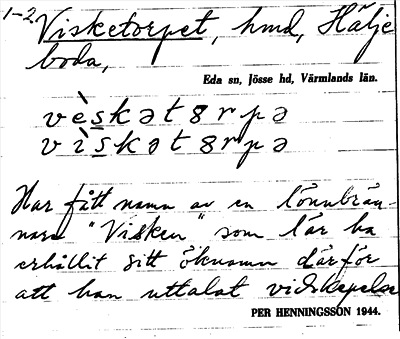 1-2
Visketorpet, hmd, Hälje
boda,
Eda sn, Jösse hd, Värmlands län.
vèskətȣrpə
vìskətȣrpə
Har fått namn av en lönnbrän-
nare "Visken" som lär ha
erhållit sitt öknamn därför
att han uttalat vidskepelse
PER HENNINGSSON 1944.